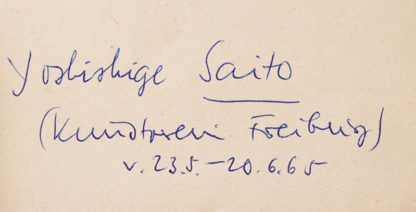 Yoshishige Saito
(Kunstverein Freiburg)
v. 23.5.-20.6.65